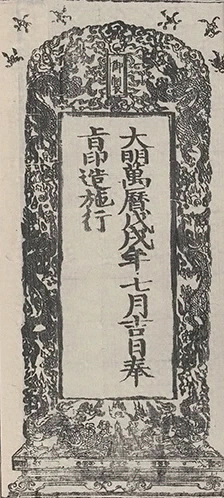 御製
大明萬曆戌年七月吉日奉
旨印造施行